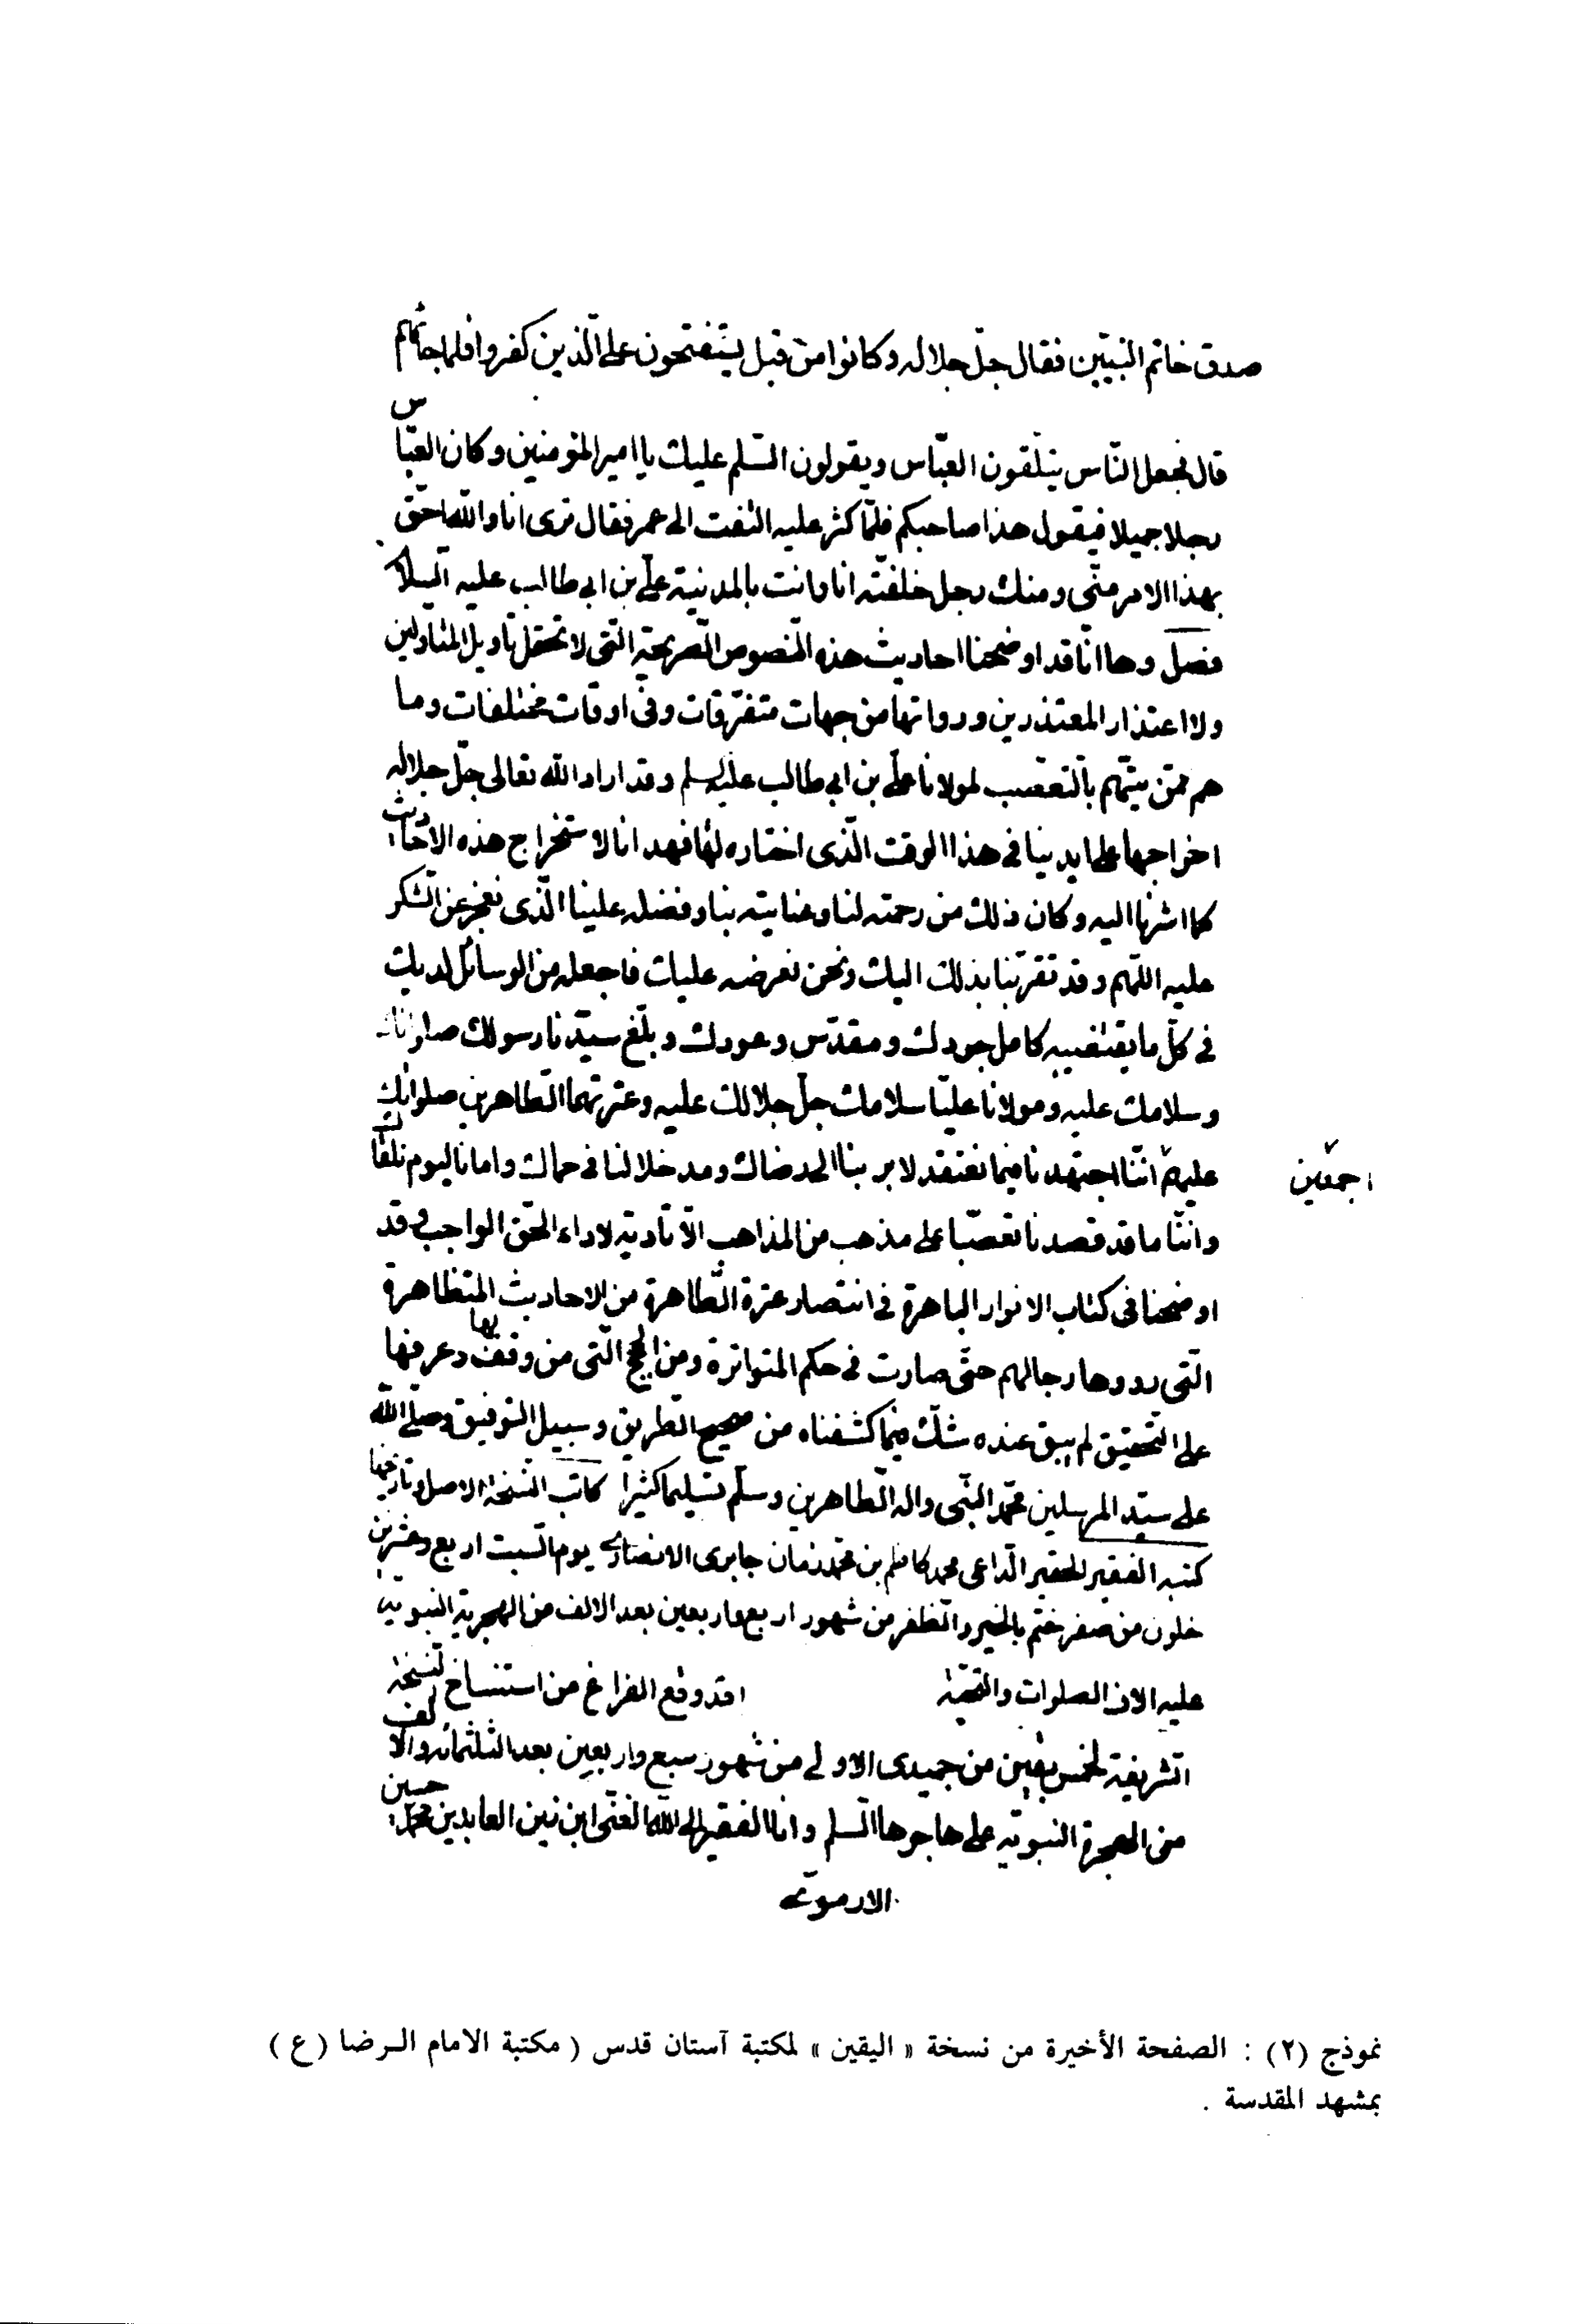 صدق خاتم النبيّين فقال جلّ جلاله وكانوا من قبل يستفتحون على الّذين كفروا فلما جائهم
قال فجعل النّاس يتلقون العبّاس ويقولون السّلم عليك يا امير المؤمنين وكان العبّاس
رجلا جميلا فيقول هذا صاحبكم فلمّا كثر عليه التفت الى عمر فقال ترى انا والله احقّ
بهذا الامر منّى ومنك رجل خلفته انا وانت بالمدينة علىّ بن ابى طالب عليه السّلام
فصل وها انا قد اوضحنا احاديث هذه النّصوص الصّريحة الّتى لا تحتمل تاويل المتاولين
ولا اعتذار المعتذرين ورواتها من جهات متفرّقات وفى اوقات مختلفات وما
هم ممّن يتّهم بالتعصّب لمولانا علىّ بن ابى طالب عليه السلم وقد اراد الله تعالى جلّ جلاله
اخراجها على ايدينا فى هذا الوقت الّذى اختاره لها فهدانا لاستخراج هذه الاحاديث
كما اشرنا اليه وكان ذلك من رحمته لنا وعنايته بنا وفضله علينا الّذى نعجز عن الشّكر
عليه اللّهم وقد تقرّبنا بذلك اليك ونحن نعرضه عليك فاجعله من الوسائل لديك
فى كلّ ما يقتضيه كامل جودك ومقدّس وعودك وبلّغ سيّدنا رسولك صلواتك
وسلامك عليه ومولانا عليّا سلامك جلّ جلالك عليه وعترتهما الطّاهرين صلواتك
عليهم اجمعين انّنا اجتهدنا فيما نعتقد لابر بنا الى رضاك ومدخلا لنا فى حماك وامانا ليوم نلقاك
وانّنا ما قد قصدنا تعصّبا على مذهب من المذاهب الّا تادية لاداء الحقّ الواجب وقد
اوضحنا فى كتاب الانوار الباهرة فى انتصار عترة الطّاهرة من الاحاديث المتظاهرة
الّتى رووها رجالهم حتّى صارت فى حكم المتواترة ومن الحجج الّتى من وقف بها وعرفها
على التّحقيق لم يبق عنده شكّ فيما كشفناه من صحيح الطّريق وسبيل التوفيق وصلّى الله
على سيّد المرسلين محمّد النّبى واله الطّاهرين وسلّم تسليما كثيرا كاتب النسخة الاصل وتاريخها
كتبه الفقير الحقير الدّاعى محمد كاظم بن محمّد زمان جابرى الانصارى يوم السّبت اربع وعشرين
خلون من صفر ختم بالخير والظّفر من شهور اربع واربعين بعد الالف من الهجرية النبويّة
عليه الاف الصلوات والتّحيّة قد وقع الفراغ من استنساخ النسخة
الشّريفة لخمس بقين من جميدى الاولى من شهور سبع واربعين بعد الثلثمائة والالف
من الهجرة النبويّه على هاجرها السّلم وانا الفقير الى الله الغنى ابن زين العابدين محمّد حسين
الارموى
نموذج (٢) : الصفحة الأخيرة من نسخة « اليقين » لمكتبة آستان قدس ( مكتبة الامام الـرضا ( ع )
بمشهد المقدسة .